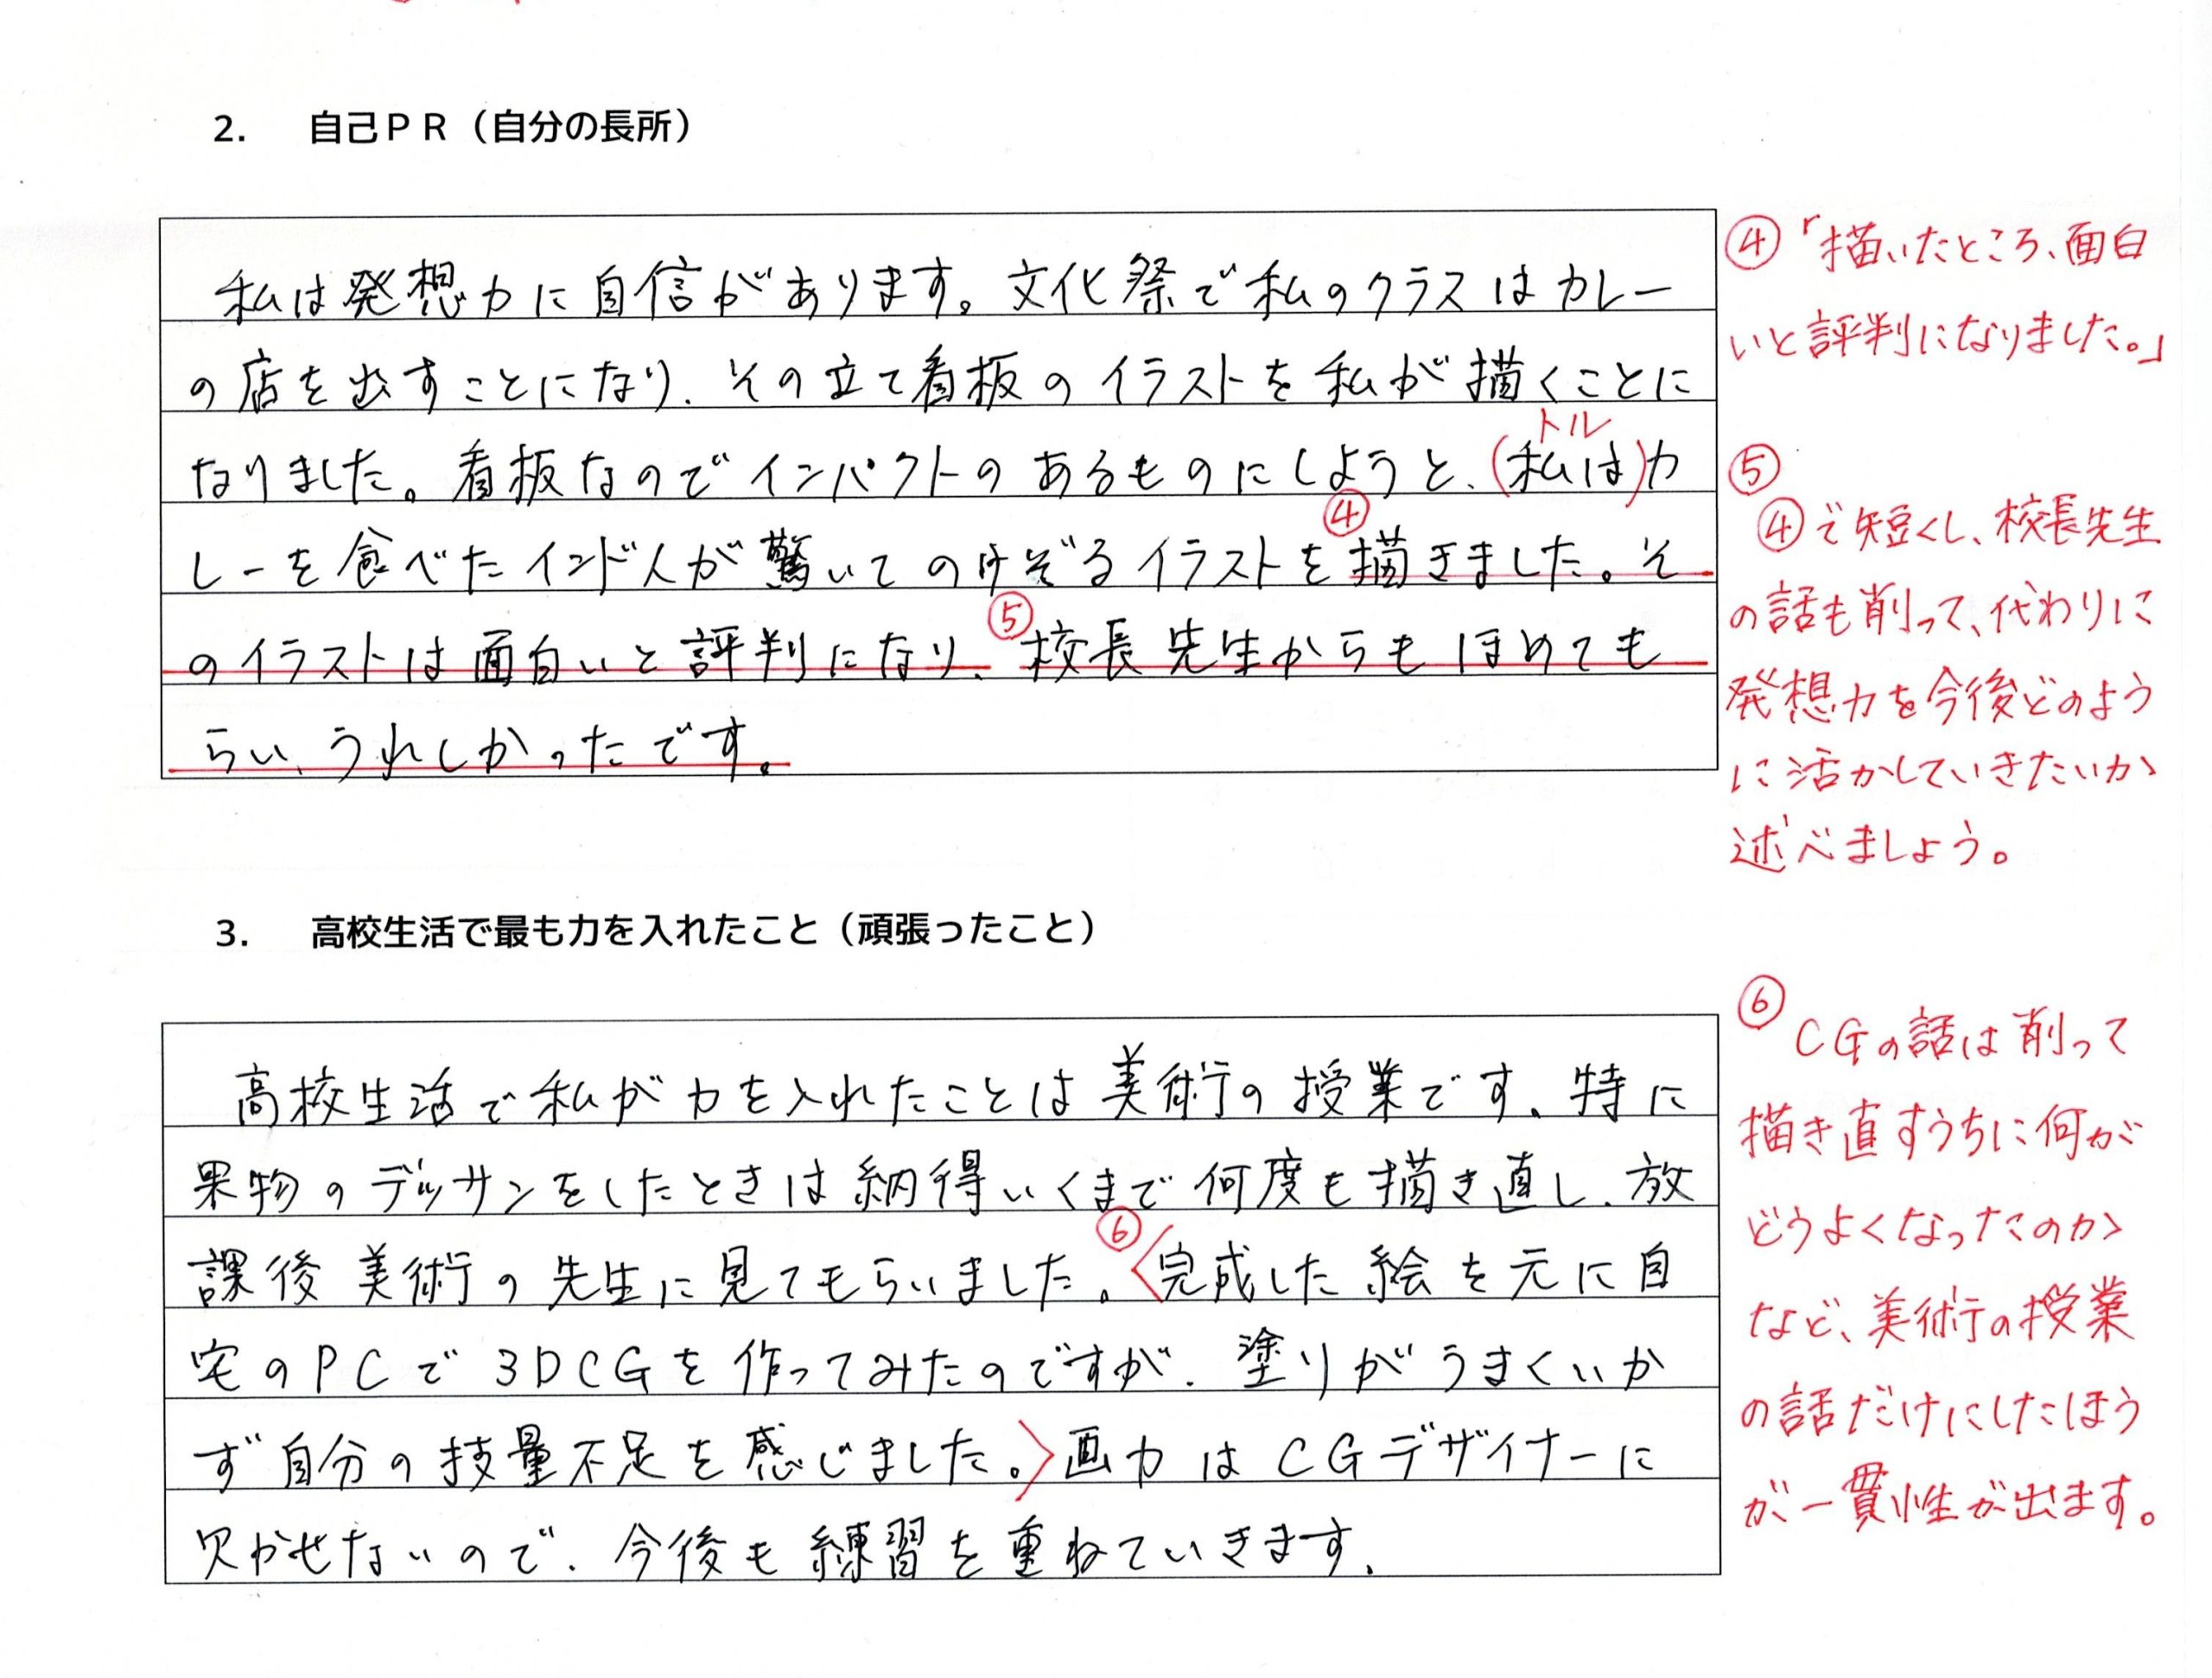 2. 自己ＰＲ（自分の長所）
私は発想力に自信があります。文化祭で私のクラスはカレー
の店を出すことになり、その立て看板のイラストを私が描くことに
トル
なりました。看板なのでインパクトのあるものにしようと、(私は)カ
④
レーを食べたインド人が驚いてのけぞるイラストを描きました。そ
⑤
のイラストは面白いと評判になり、校長先生からもほめても
らい、うれしかったです。
④「描いたところ、面白
いと評判になりました。」
⑤
④で短くし、校長先生
の話も削って、代わりに
発想力を今後どのよう
に活かしていきたいか
述べましょう。
3. 高校生活で最も力を入れたこと（頑張ったこと）
高校生活で私が力を入れたことは美術の授業です。特に
果物のデッサンをしたときは納得いくまで何度も描き直し、放
⑥
課後美術の先生に見てもらいました。〈完成した絵を元に自
宅のPCで3DCGを作ってみたのですが、塗りがうまくいか
ず自分の技量不足を感じました。〉画力はCGデザイナーに
欠かせないので、今後も練習を重ねていきます。
⑥
CGの話は削って
描き直すうちに何が
どうよくなったのか
など、美術の授業
の話だけにしたほう
が一貫性が出ます。